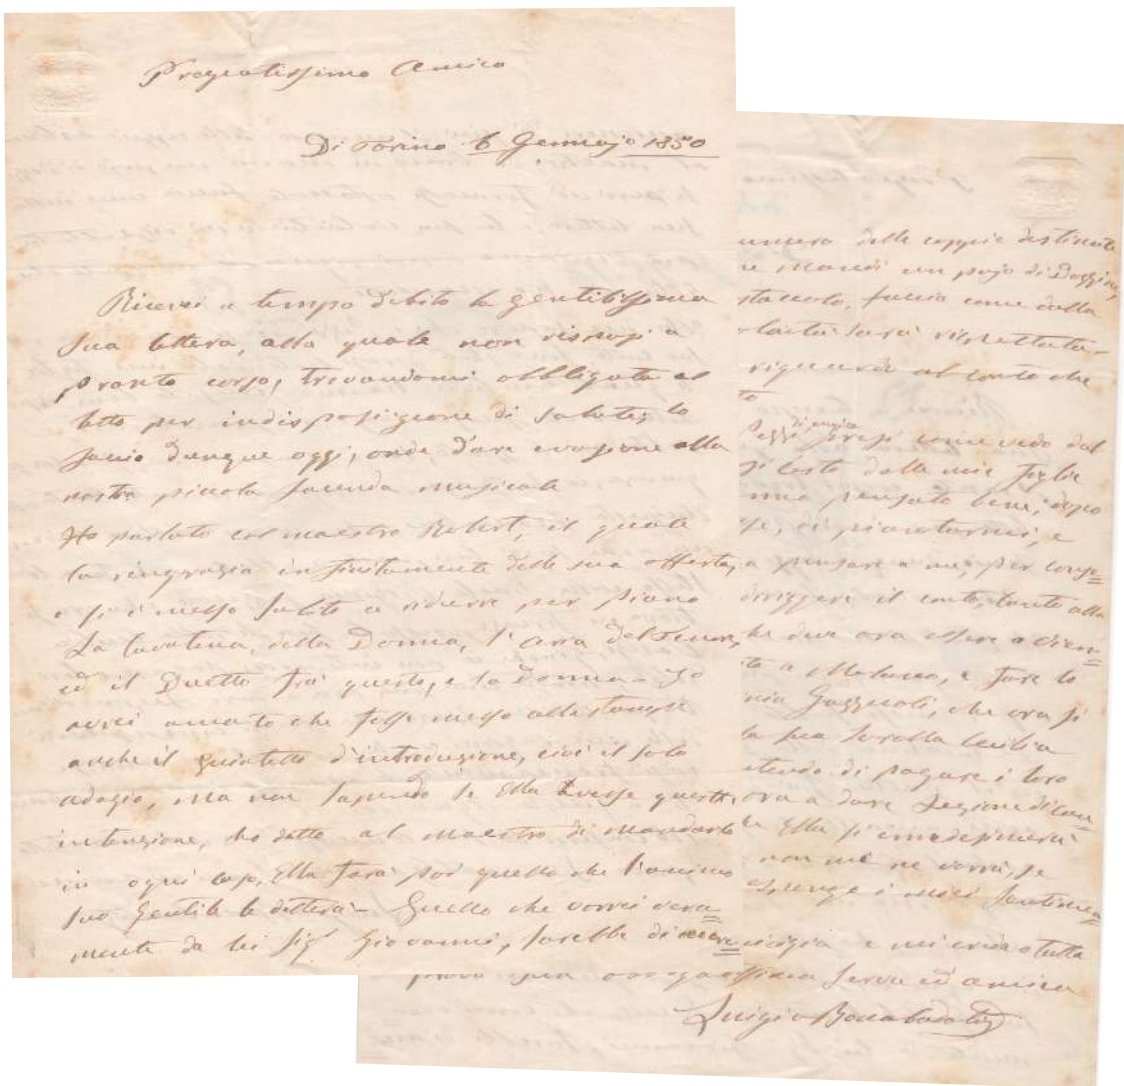 Pregiatissimo Amico
Di Torino 6 Gennajo 1850
Ricevei a tempo debito la gentilissima
Sua lettera, alla quale non risposi a
pronto corso, trovandomi obbligata al
letto per indisposizione di salute; lo
faccio dunque oggi, onde dare evasione alla
nostra piccola facenda musicale
Ho parlato col maestro Robert, il quale
la ringrazia infinitamente della sua offerta,
e si è messo subito a ridurre per piano
La Cavatina della Donna, l'aria del Tenore,
ed il Duetto frà questo, e la Donna - Io
avrei amato che fosse messo alle stampe
anche il quintetto d'introduzione, cioè il solo
adagio, ma non sapendo se Ella avesse questa
intenzione, ho detto al Maestro di mandarlo
in ogni caso, Ella farà poi quello che l'animo
suo gentile le detterà - Quello che vorrei vera=
mente da lei Sig.r Giovanni, sarebbe di
delle coppie destinate
Mandi un pajo di Dozzine,
faccia come dalla
sarà rispettata -
al conto che
di musica
presi come vedo dal
dalle mie figlie
pensato bene, dopo
di piantarmi, e
a pensare a me, per conse=
dirigere il conto, tanto alla
che deve ora essere a Vien=
a Madama, e fare lo
Gazzuoli, che ora si
la sua Sorella Cecilia
di pagare i loro
ora a dare Lezione di Can=
Ella si
non me ne vorrà, se
i miei sentimen=
e mi creda a tutta
prova sua serva ed amica
Luigia Boccabadati